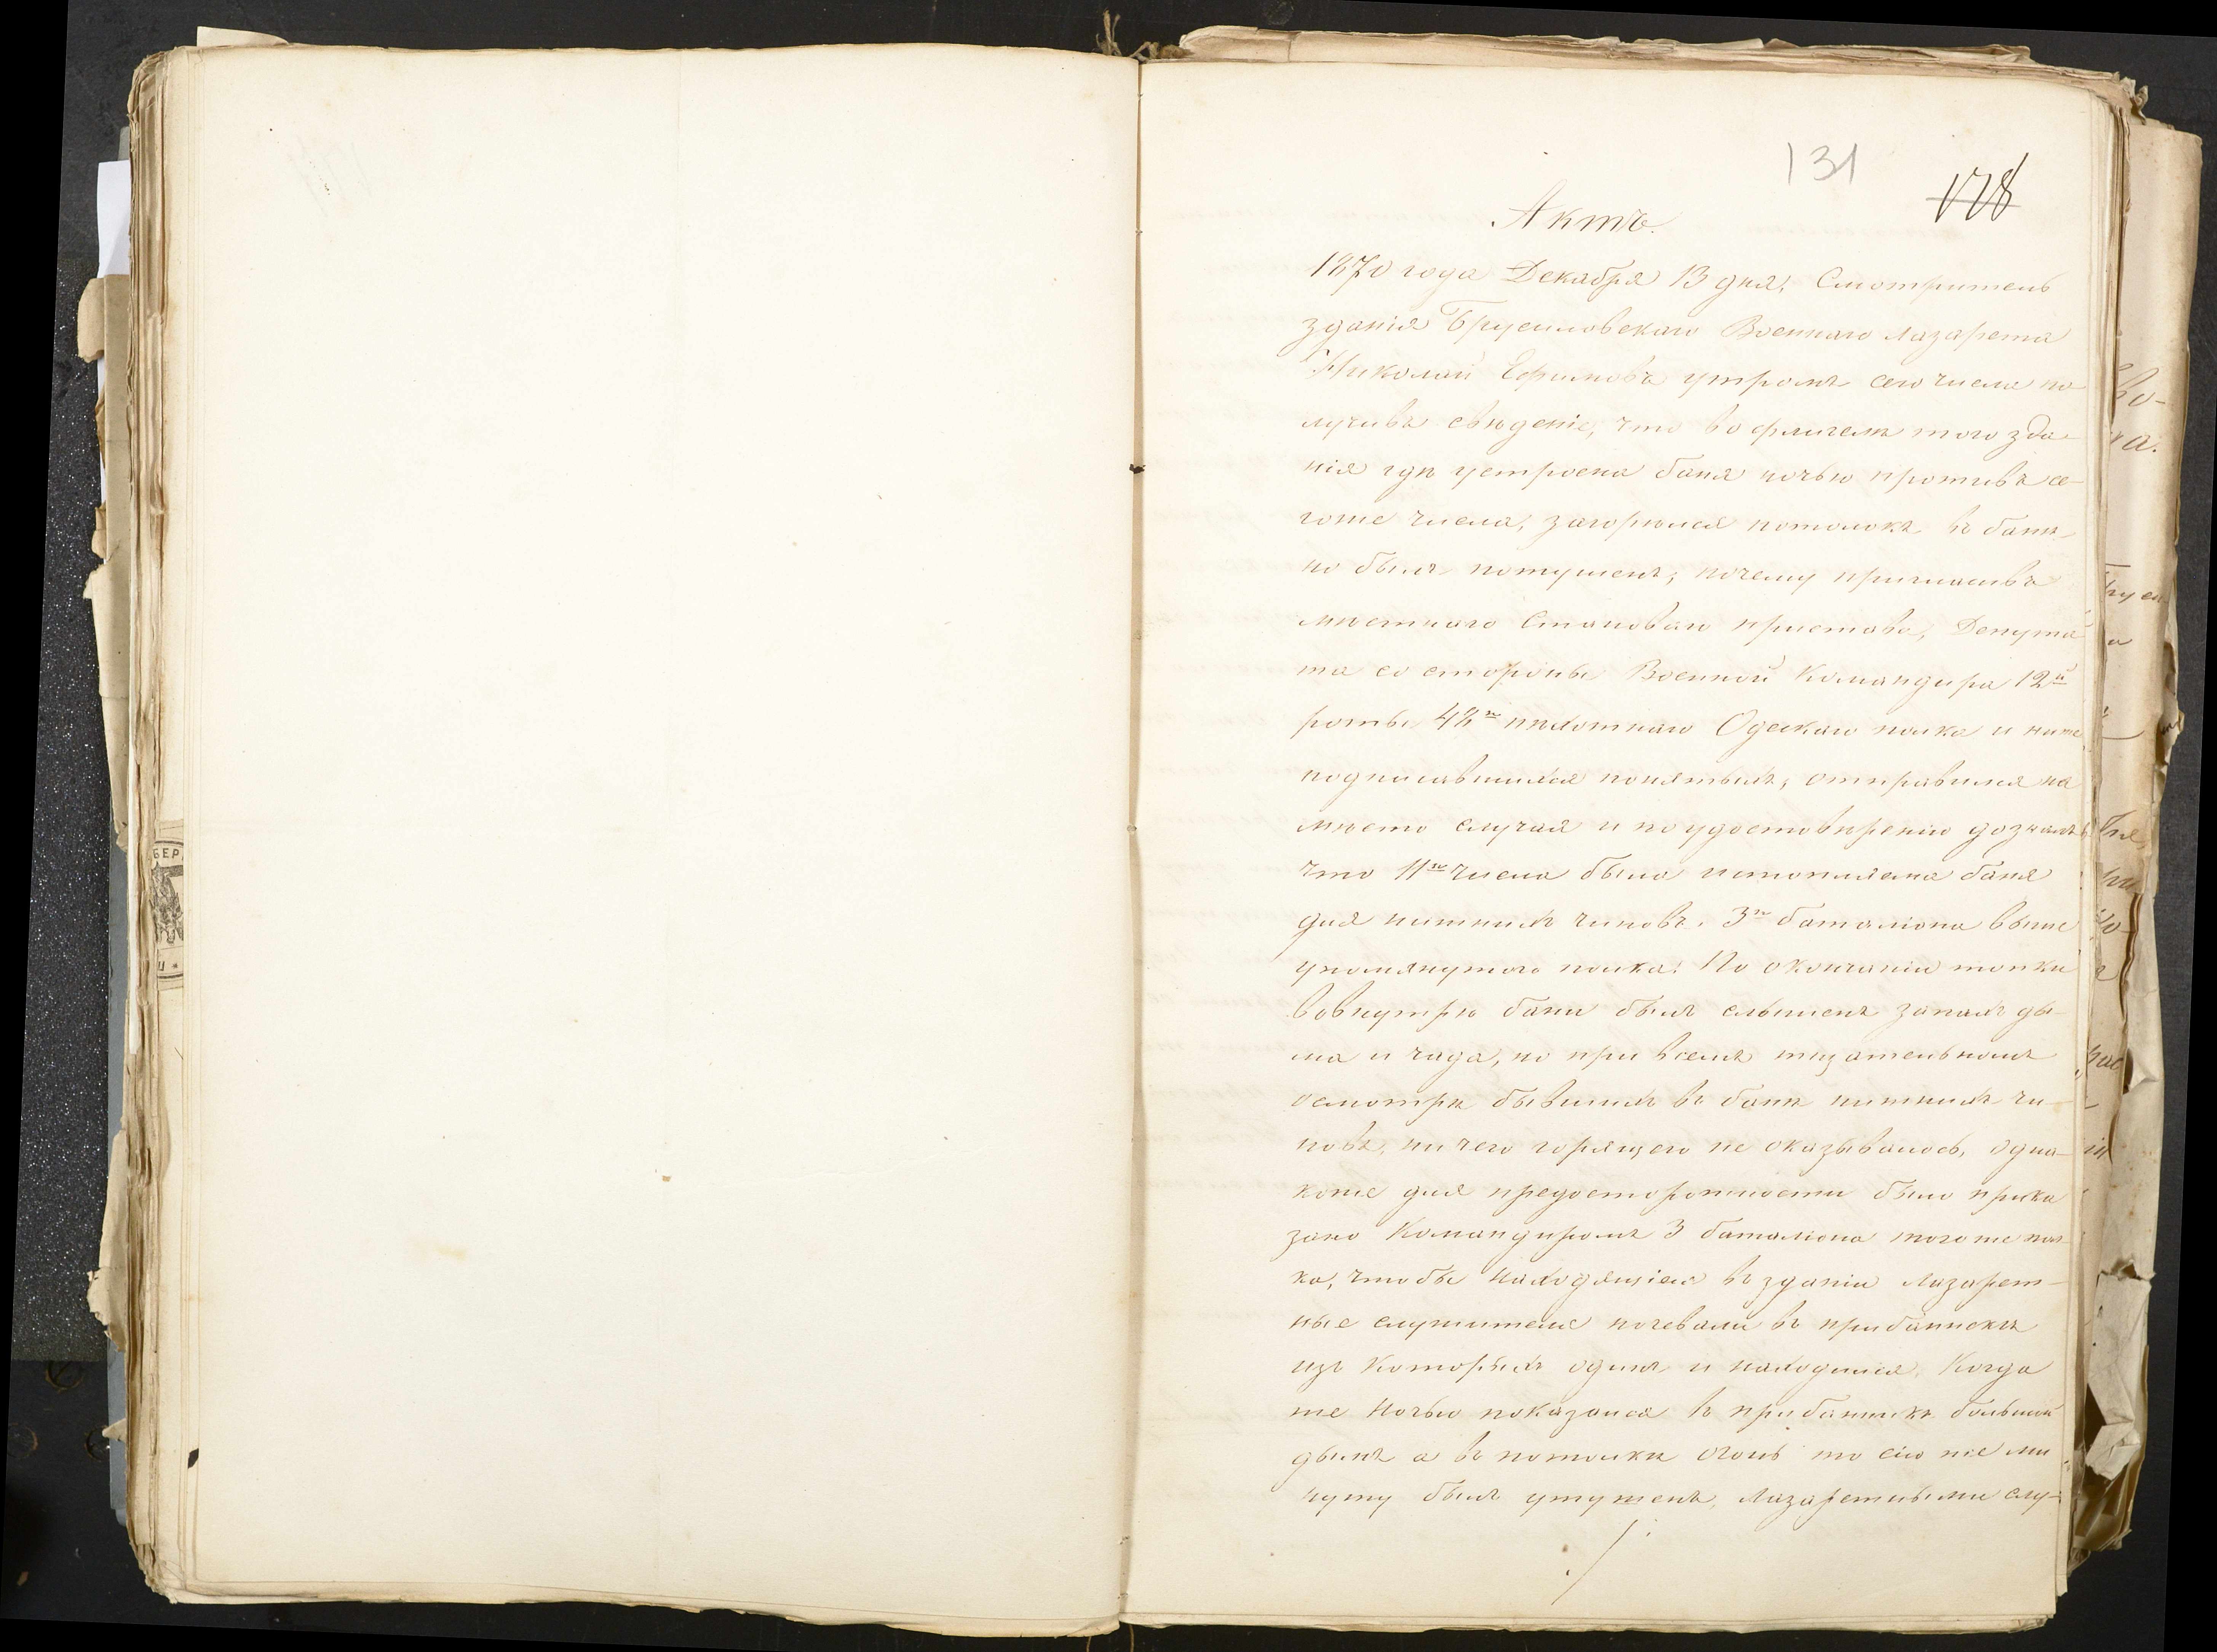 131
178
Актъ.
1870 года Декабря 13 дня, Смотритель
зданія Брусиловскаго Военнаго лазарета
Николай Ефимовъ утромъ сего числа по
лучивъ свѣденіе, что во флигелѣ того зда-
нія гдѣ устроена баня ночью противъ се-
гоже числа, загорѣлся потолокъ въ банѣ
но былъ потушенъ, почему пригласивъ
мѣстнаго Становаго пристава, Депута
та со стороны Военной Командира 12й
роты 48го пѣхотнаго Одескаго полка и ниже
подписавшихся понятыхъ, отправился на
мѣсто случая и по удостовѣренію дозналъ
что 11го числа была истопляема баня
для нижнихъ чиновъ 3го баталіона выше
упомянутого полка. По окончаніи топки
вовнутрѣ бани былъ слышенъ запахъ ды-
ма и чада, но при всемъ тщательномъ
осмотрѣ бывшихъ въ банѣ нижнихъ чи-
новъ, ни чего горящего не оказывалось, одна-
коже для предосторожности было прика
зано Командиромъ 3 баталіона тогоже пол
ка, чтобы находящіеся въ зданіи лазарет-
ные служители ночевали въ прибанникѣ
изъ которыхъ одинъ и находился. Когда
же ночью показался въ прибанникѣ большой
дымъ а въ потолкѣ огонь то сію же ми
нуту былъ утушенъ лазаретными слу-
./.
БЕР